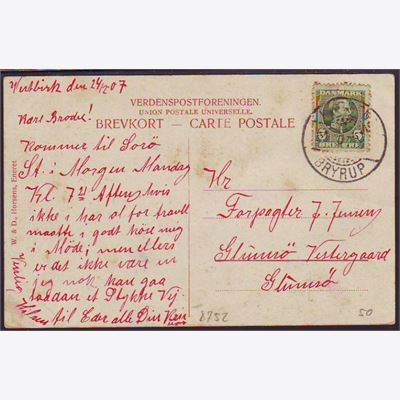 Vestbirk den 24/2 07
VERDENSPOSTFORENINGEN.
UNION POSTALE UNIVERSELLE.
BREVKORT – CARTE POSTALE
DANMARK
5 5
ØRE ØRE
BRYRUP
W. & D., Horsens, Eneret
Kære Broder!
Kommer til Sorö
St. i Morgen Mandag
Kl. 7 21 Aften hvis
ikke i har al for travlt
maatte i godt köre mig
i Möde, men ellers
er det ikke være en
jeg nok kan gaa
saadan et Stykke Vej.
Venlig Hilsen til Eder alle Din
Hr
Forpagter J. Jensen
Glumsö Vestergaard
Glumsö
8752
50